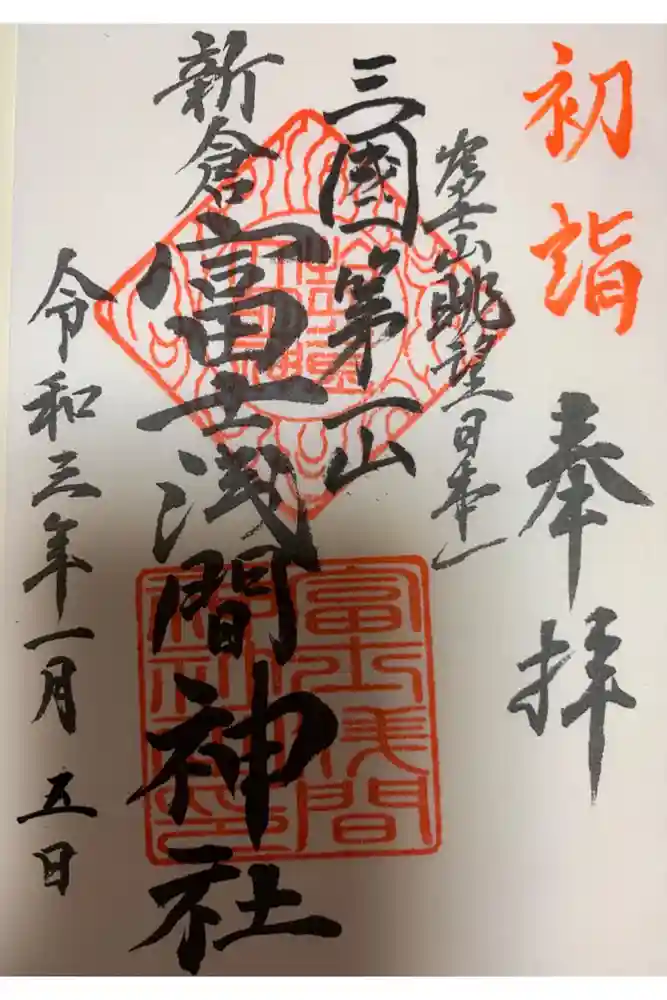 初詣
奉拝
富士山眺望日本一
三國第一山
新倉
富士浅間神社
令和三年一月五日
富士浅間
神社印